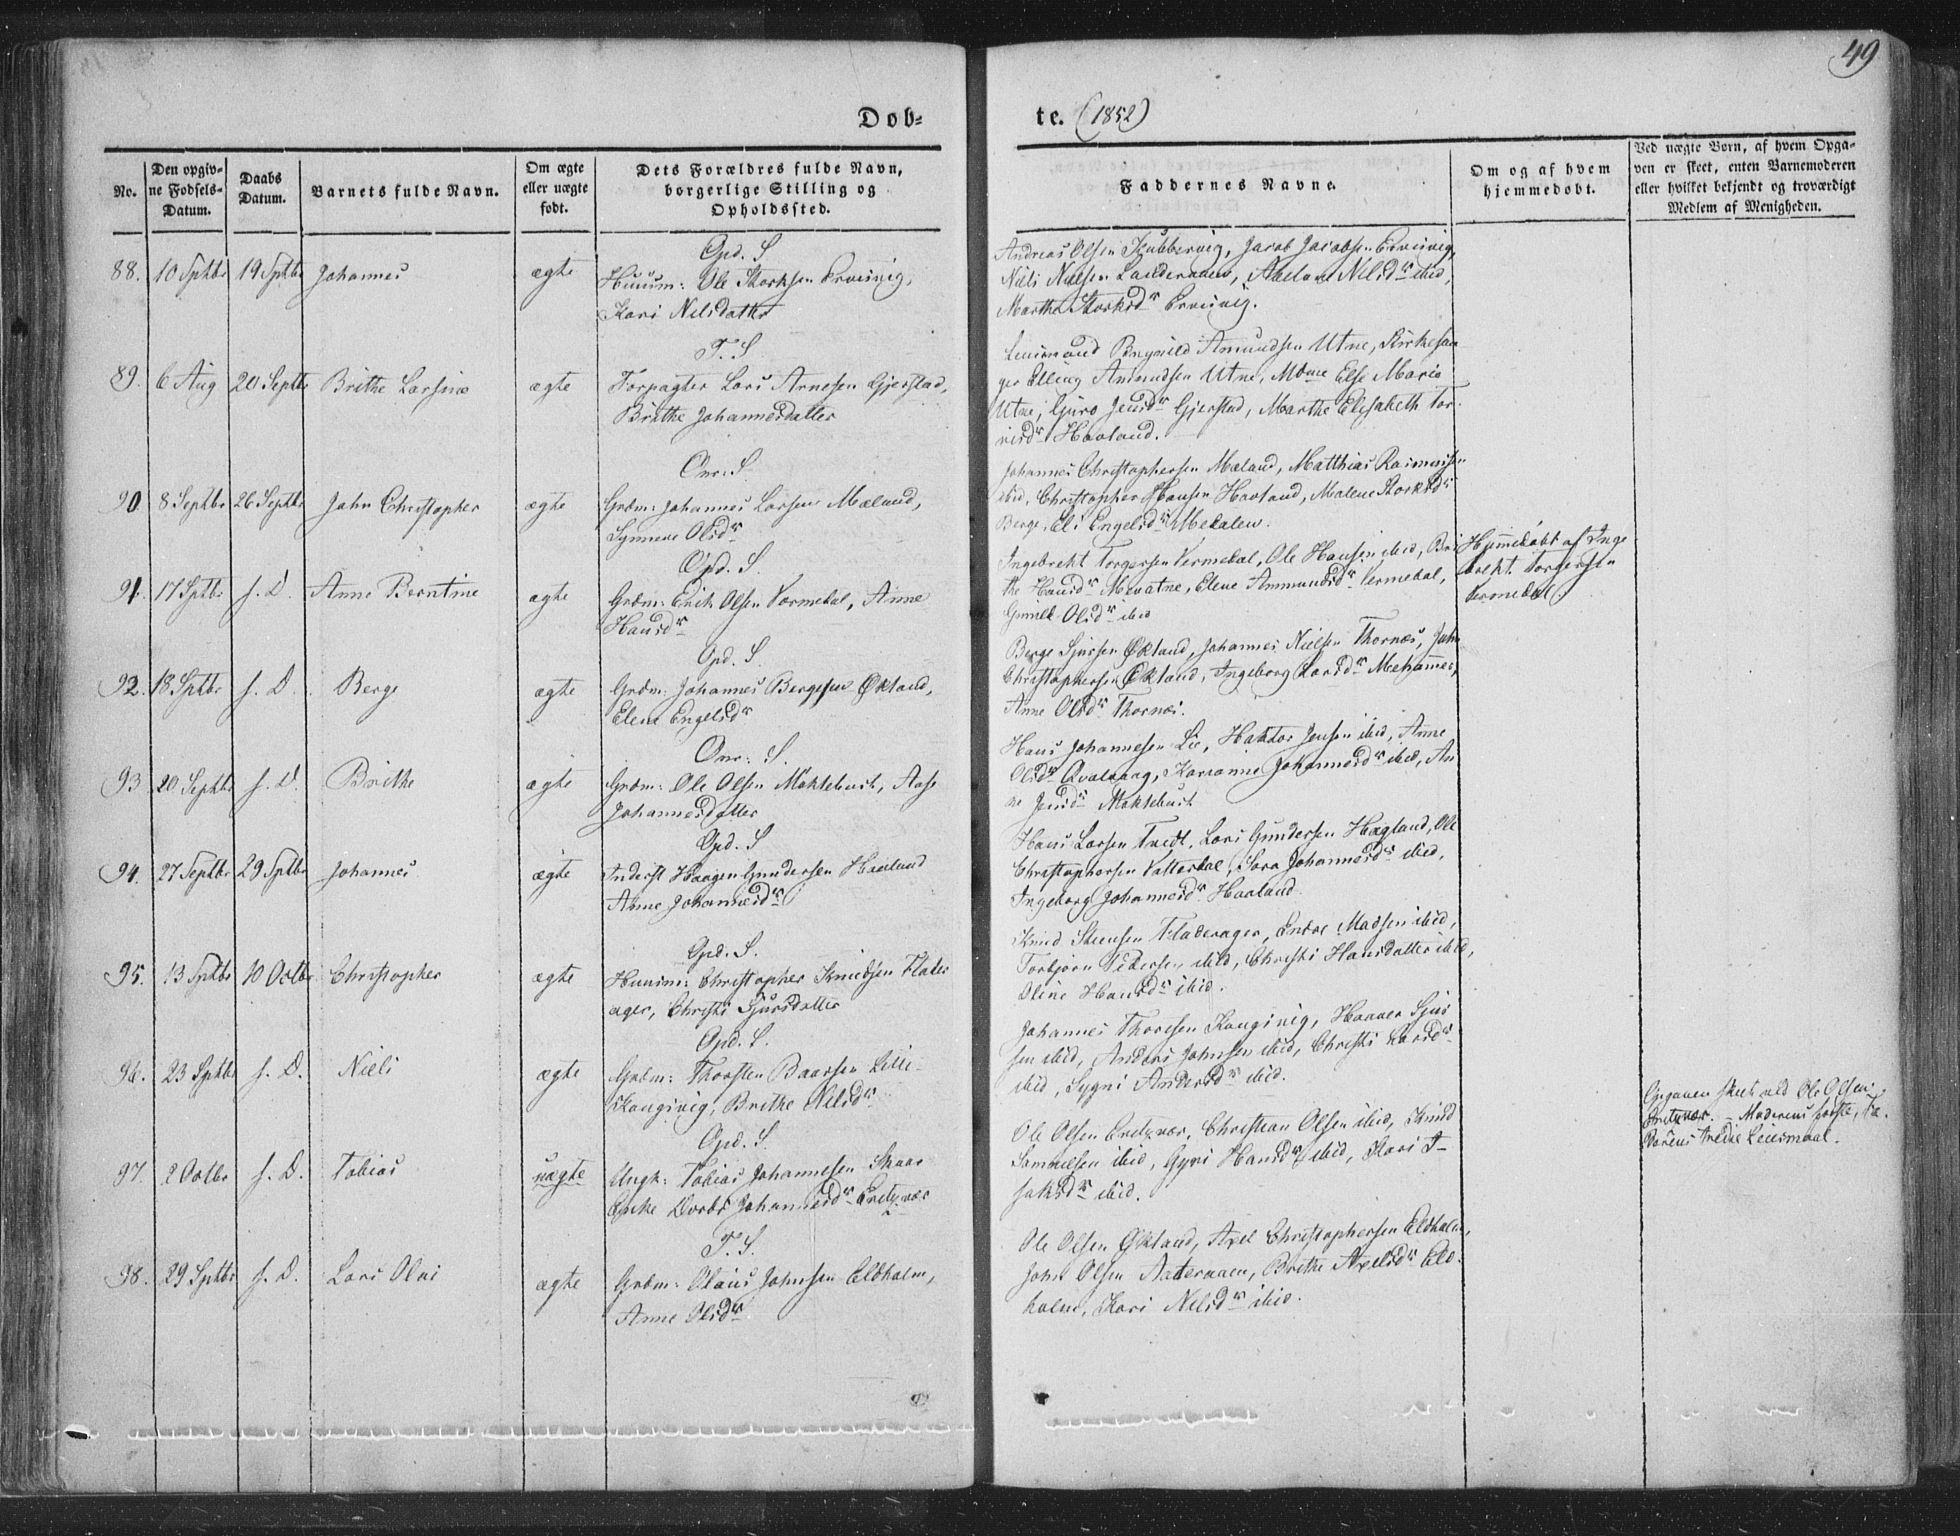 49
Døb-
te. (1852)
No.
Den opgiv-
ne Fødsels-
Datum.
Daabs
Datum.
Barnets fulde Navn.
Om ægte
eller uægte
født.
Dets Forældres fulde Navn,
borgerlige Stilling og
Opholdssted.
Faddernes Navne.
Om og af hvem
hjemmedøbt.
Ved uægte Børn, af hvem Opga-
ven er skeet, enten Barnemoderen
eller hvilket bekjendt og troværdigt
Medlem af Menigheden.
88. 10 Sptbr 19 Sptbr Johannes ægte
Opd. S
Huusm: Ole Storksen
Kari Nelsdatter
Andreas Olsen Jacob Jacobsen
Niels Nielsen Nilsdr ibid,
Marthe Storksdr
89. 6 Aug 20 Septbr Brithe Larsine ægte
T. S
Forpagter Lars Arnesen Gjerstad,
Brithe Johannesdatter
Lensmand Brynild Amundsen Utne, Kirkesan-
ger Elling Amundsen Utne, Mdme Else Marie
Utne, Guro Jensdr Gjerstad, Marthe Elisabeth Tor-
risdr Haaland.
90. 8 Septbr 26 Septbr John Christopher ægte
Onr: S.
Grdm: Johannes Larsen Mæland,
Synneve Olsdr
Johannes Christophersen Mæland, Matthias Rasmussen
ibid, Christopher Hansen Haaland, Malene Storksdr
Berge, Eli Engelsdr
91. 17 Sptbr s. D. Anne Berntine ægte
Opd. S.
Grdm: Erik Olsen Vormedal, Anne
Hansdr
Ingebrekt Torgersen Vermedal, Ole Hansen ibid, Bri-
the Hansdr Mevatne, Elene Ammundsdr Vermedal,
Olsdr ibid
Hjemmedøbt af Inge
brekt Torgersen
Vermedal.
92. 18 Sptbr s. D. Berge ægte
Opd. S.
Grdm: Johannes Bergesen Økland,
Elena Engelsdr
Berge Sjursen Økland, Johannes Nielsen Thornæs, John
Christophersen Økland, Ingeborg Larsdr
Anne Olsdr Thornæs.
93 20 Septbr s. D. Brithe ægte
Onr: S.
Grdm: Ole Olsen Møklebust, Aase
Johannesdatter
Hans Johannesen Lie, Haktor Jensen ibid, Anne
Olsdr Karianne Johannesdr ibid, An-
ne Jensdr Møklebust
94. 27 Septbr 29 Sptbr Johannes ægte
Opd. S
Inderst Haagen Gundersen Haaland
Anne Johannesdr
Hans Larsen Tvedt, Lars Gundersen Hægland, Ole
Christophersen Vatterdal, Sara Johannesdr ibid,
Ingeborg Johannesdr Haaland.
95. 13 Sptbr 10 Octbr Christopher ægte
Opd. S.
Huusm: Christopher Knudsen Flader-
ager, Christi Sjursdatter
Knud Steensen Fladerager, Endre Madsen ibid,
Torbjørn Pedersen ibid, Christi Hansdatter ibid,
Oline Hansdr ibid.
96. 23 Sptbr s. D. Niels ægte
Opd. S.
Grdm: Thorsten Baarsen Lille-
Kongsvig, Brithe Nilsdr
Johannes Thoresen Kongsvig, Haaver Sjur-
sen ibid, Anders Johnsen ibid, Christi Larsdr
ibid, Sygni Andersdr ibid.
97. 2 Octbr s. D. Tobias uægte
Opd. S.
Ungk: Tobias Johannesen Skaar
Enke Dorte Johannesdr Eretzvær
Ole Olsen Eretzvær, Christian Olsen ibid, Knud
Samuelsen ibid, Gyri Hansdr ibid, Kari I-
saksdr ibid.
Opgaven skeet ved Ole Olsen
Eretzvær. - Moderens første, Fa-
derens tredie Leiermaal.
98. 29 Sptbr s. D. Lars Olai ægte
T. S.
Grdm: Olaus Johnsen Eldholm,
Anne Olsdr
Ole Olsen Økland, Axel Christophersen Eldholm,
John Olsen Brithe Axelsdr Eld-
holm, Kari Nelsdr ibid.